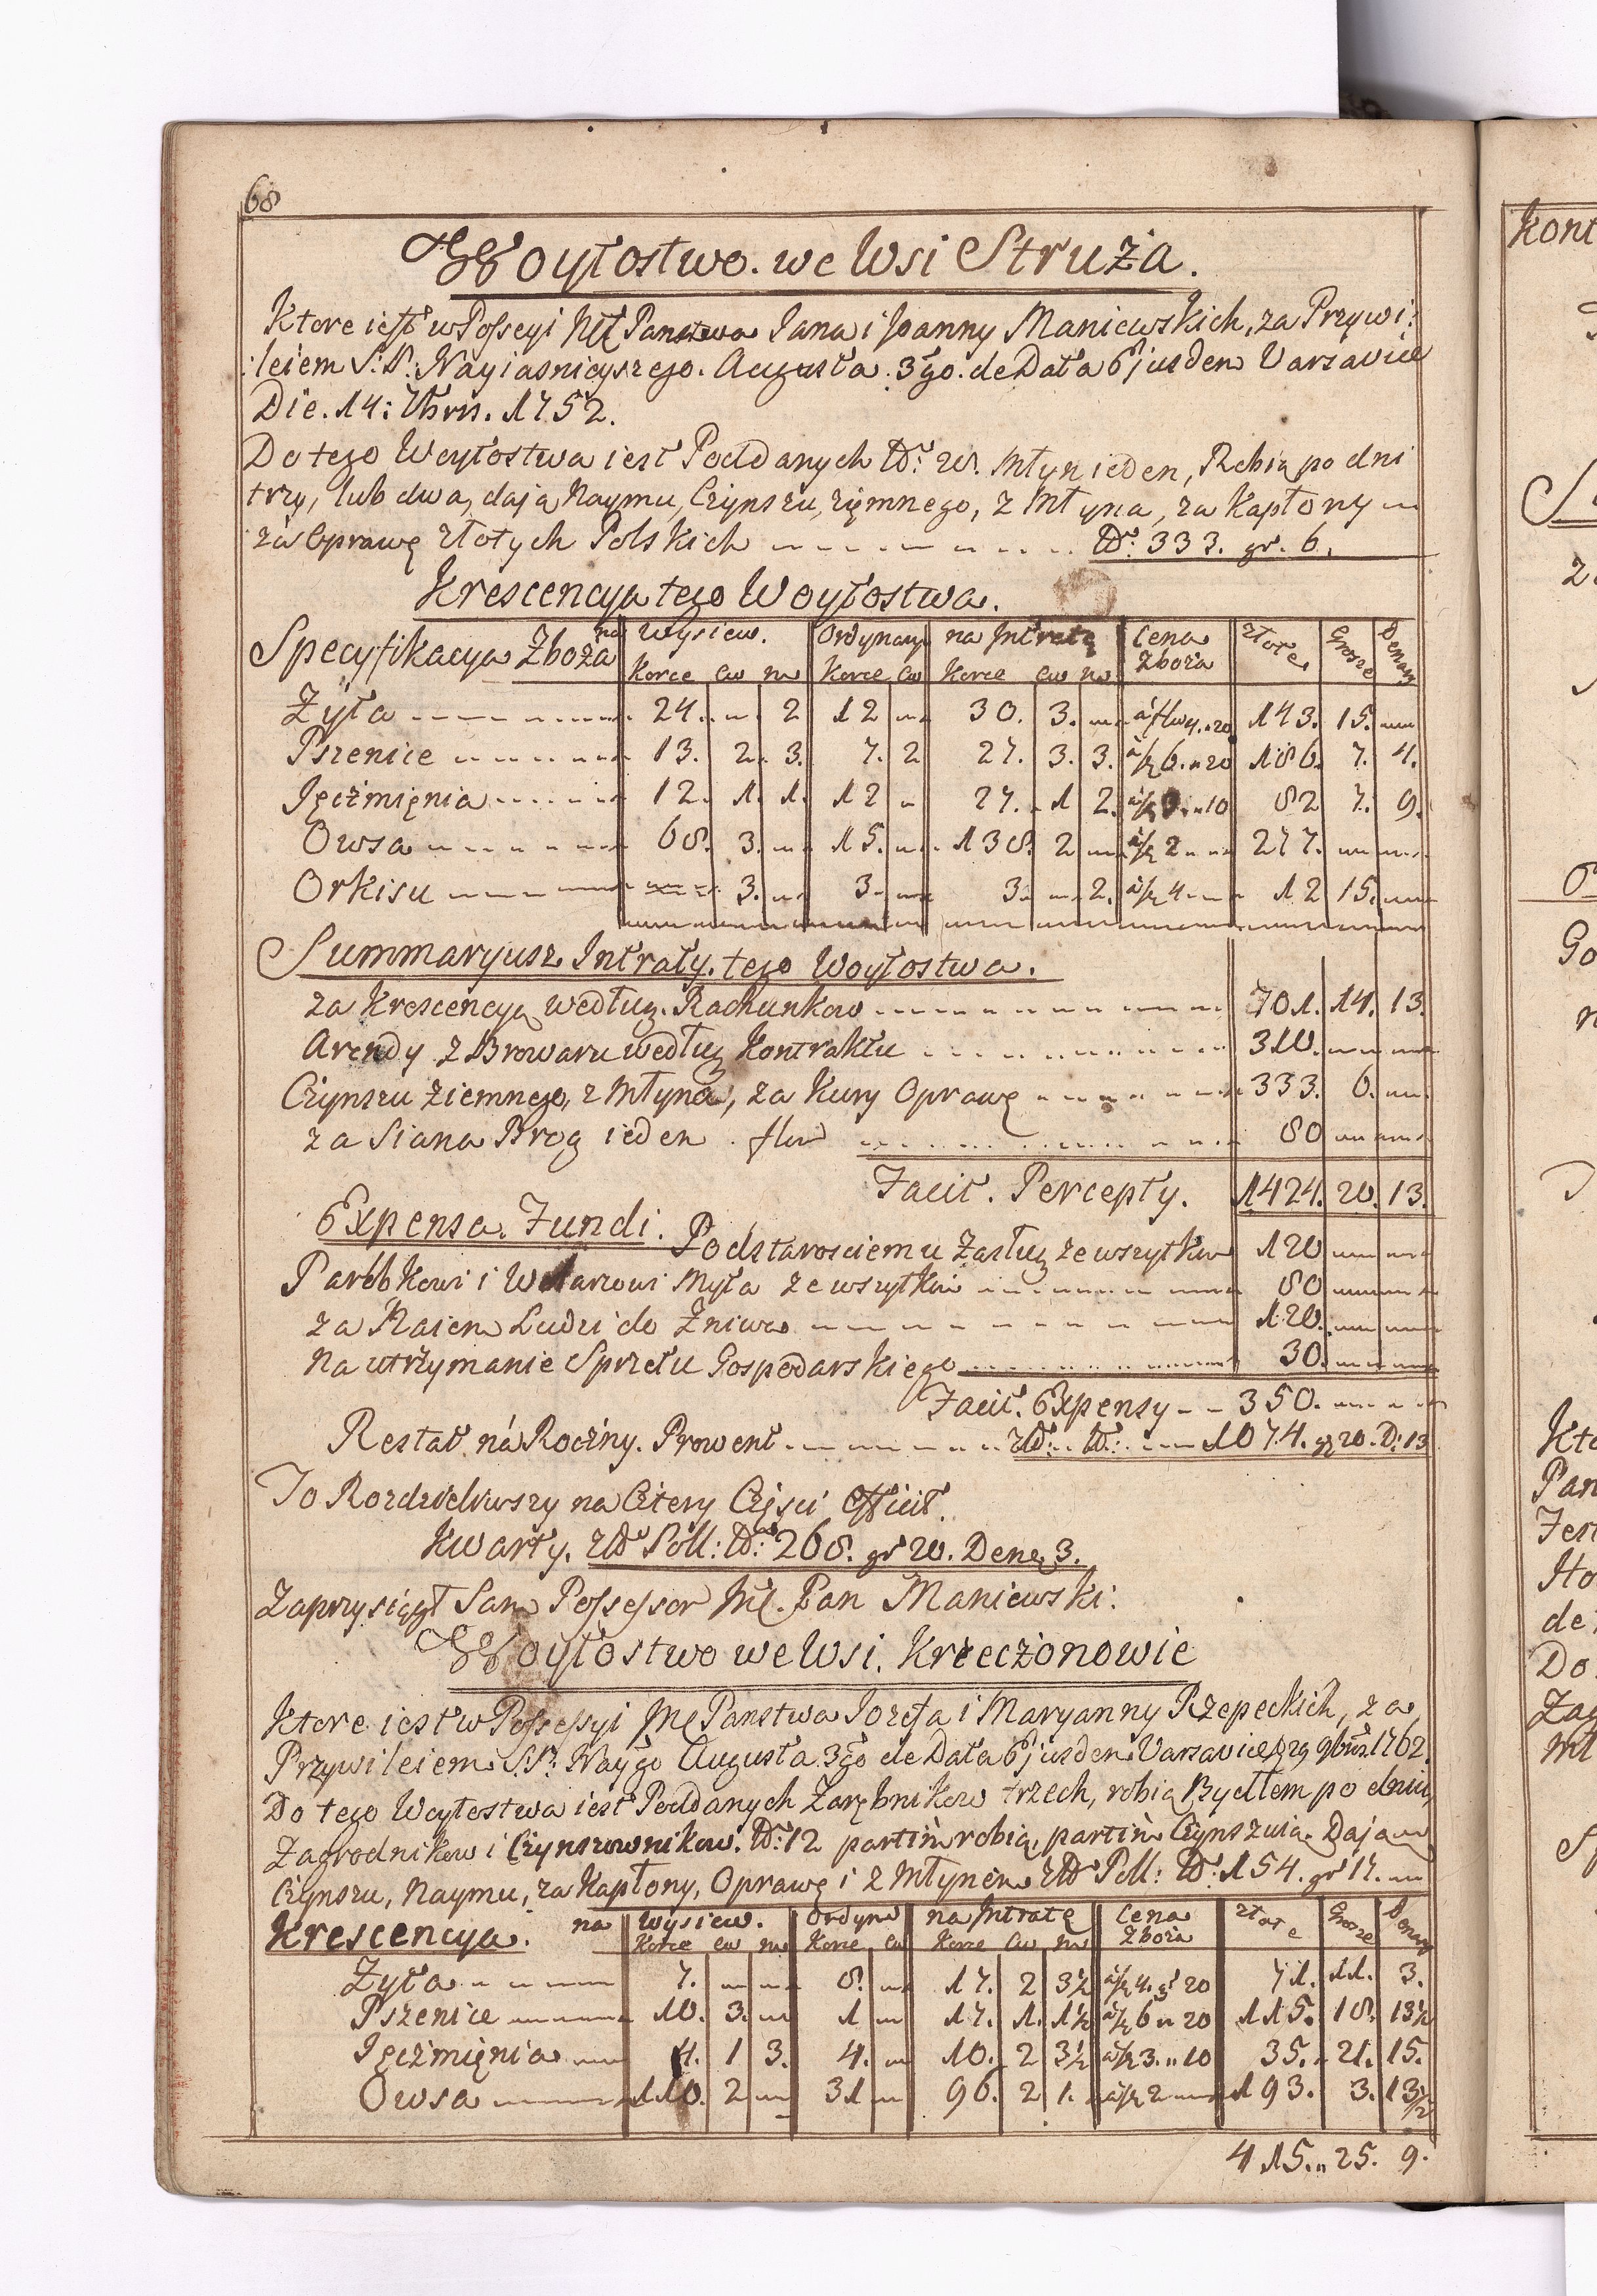 68
Woytostwo. we Wsi Struża.
Ktore iest w Possesyi Panstwa Jana i Joanny Maniewskich, za Przywi:
:leiem S: P: Nayiasnieyszego. Augusta. 3go. de Data Ejusdem Varsaviæ
Die. 14: 7bris. 1752.
Do tego Woytostwa iest Poddanych No: 20. Młyn ieden, Robią po dni
trzy, lub dwa, dają Naymu, Czynszu, ziemnego, z Młyna, za Kapłony
za Oprawę złotych Polskich No: 333. gr. 6.
Krescencya tego Woytostwa.
Specyfikacya Zboża na Wysiew. Ordynary na Intratę Cena Zboża złote Grosze Denary
Korce Cw Korce Cw Korce Cw
Żyta 24. 2 12 30. 3. a 4. 20 143. 15.
Pszenice 13. 2. 3. 7. 2 27. 3. 3. a 6. 20 186. 7. 4.
Jęczmięnia 12. 1. 1. 12 27. 1 2. a 3. 10 82 7. 9.
Owsa 68. 3. 15. 138. 2 a 2 277.
Orkisu 3. 3. 3. 2. a 4 12 15.
Summaryusz Intraty. tego Woytostwa.
za Krescencyą według. Rachunkow 701. 14. 13.
Arendy z Browaru według Kontraktu 310.
Czynszu ziemnego, z Młyna, za Kury Oprawę 333. 6.
za Siana Brog ieden 80
Facit. Percepty. 1424. 20. 13.
Expensa. Fundi. Podstarosciemu Zasług ze wszytkim 120
Parobkowi i Myta ze wszytkim 80
za Ludzi do Żniwa 120.
Na utrzymanie Sprzetu Gospodarskiego 30.
Facit. Expensy 350.
Restat ná Roczny. Prowent 1074. gr 20. D: 13
To Rozdzieliwszy na Cztery Częsci Efficit.
Kwarty. Poll: No: 268. gr 20. Dena. 3.
Zaprzysiągł Sam Possessor Pan Maniewski:
Woytostwo we Wsi. Krzeczonowie
Ktore iest w Possessyi Panstwa Jozefa i Maryanny Rzepeckich, za
Przywileiem S.P: Nayigo Augusta 3go de Data Ejusdem Varsaviæ 9bris 1762.
Do tego Woytostwa iest Poddanych Zarębnikow trzech, robią Bydłem po dniu,
Zagrodnikow i Czynszownikow. No: 12 partim robią, partim Czynszuią. Dają
Czynszu, Naymu, za Kapłony, Oprawę i z Młynem Poll: No: 154. gr 17.
Krescencya. na Wysiew. Ordyna na Intratę Cena Zboża złote Grosze Denary
Korce Cw Korce Cw Korce Cw
Żyta 7. 8. 17. 2 3½ a 4. gr 20 71. 11. 3.
Pszenice 10. 3. 1 17. 1. 1½ a 6 20 115. 18. 13½
Jęczmięnia 4. 1 3. 4. 10. 2 3½ a 3. 10 35. 21. 15.
Owsa 110. 2 31 96. 2 1. a 2 193. 3. 13½
415. 25. 9.